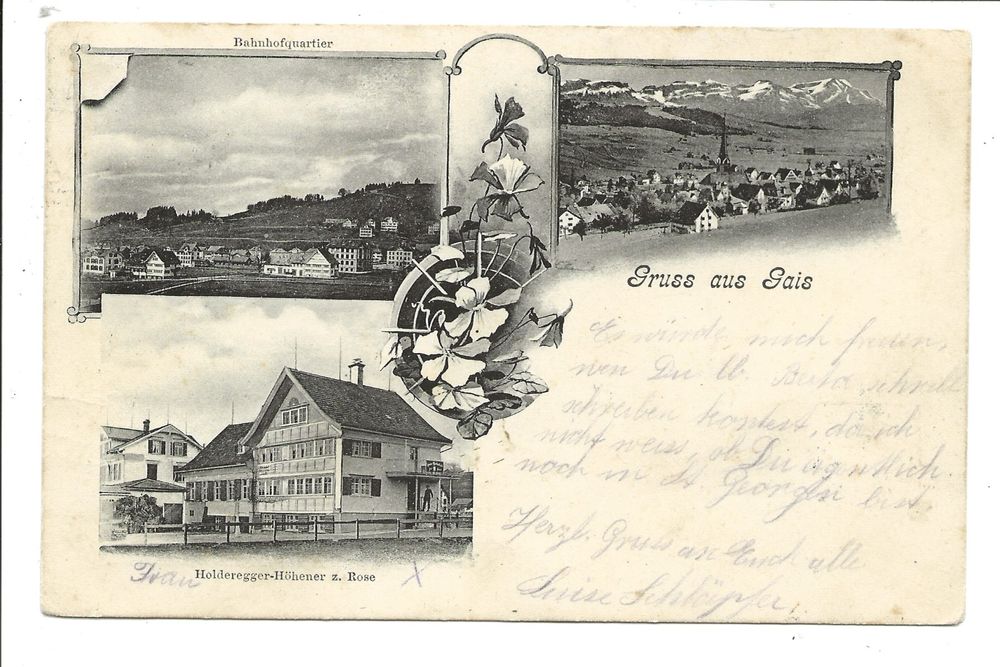 Bahnhofquartier
Gruss aus Gais
Es würde mich freuen,
wen Du lb. Berta schnell
schreiben kontest, da ich
nicht weiss, ob Du eigentlich
noch in St. Georgen bist.
Herzl. Gruss an Euch alle
Luise Schläpfer.
Frau Holderegger-Höhener z. Rose X